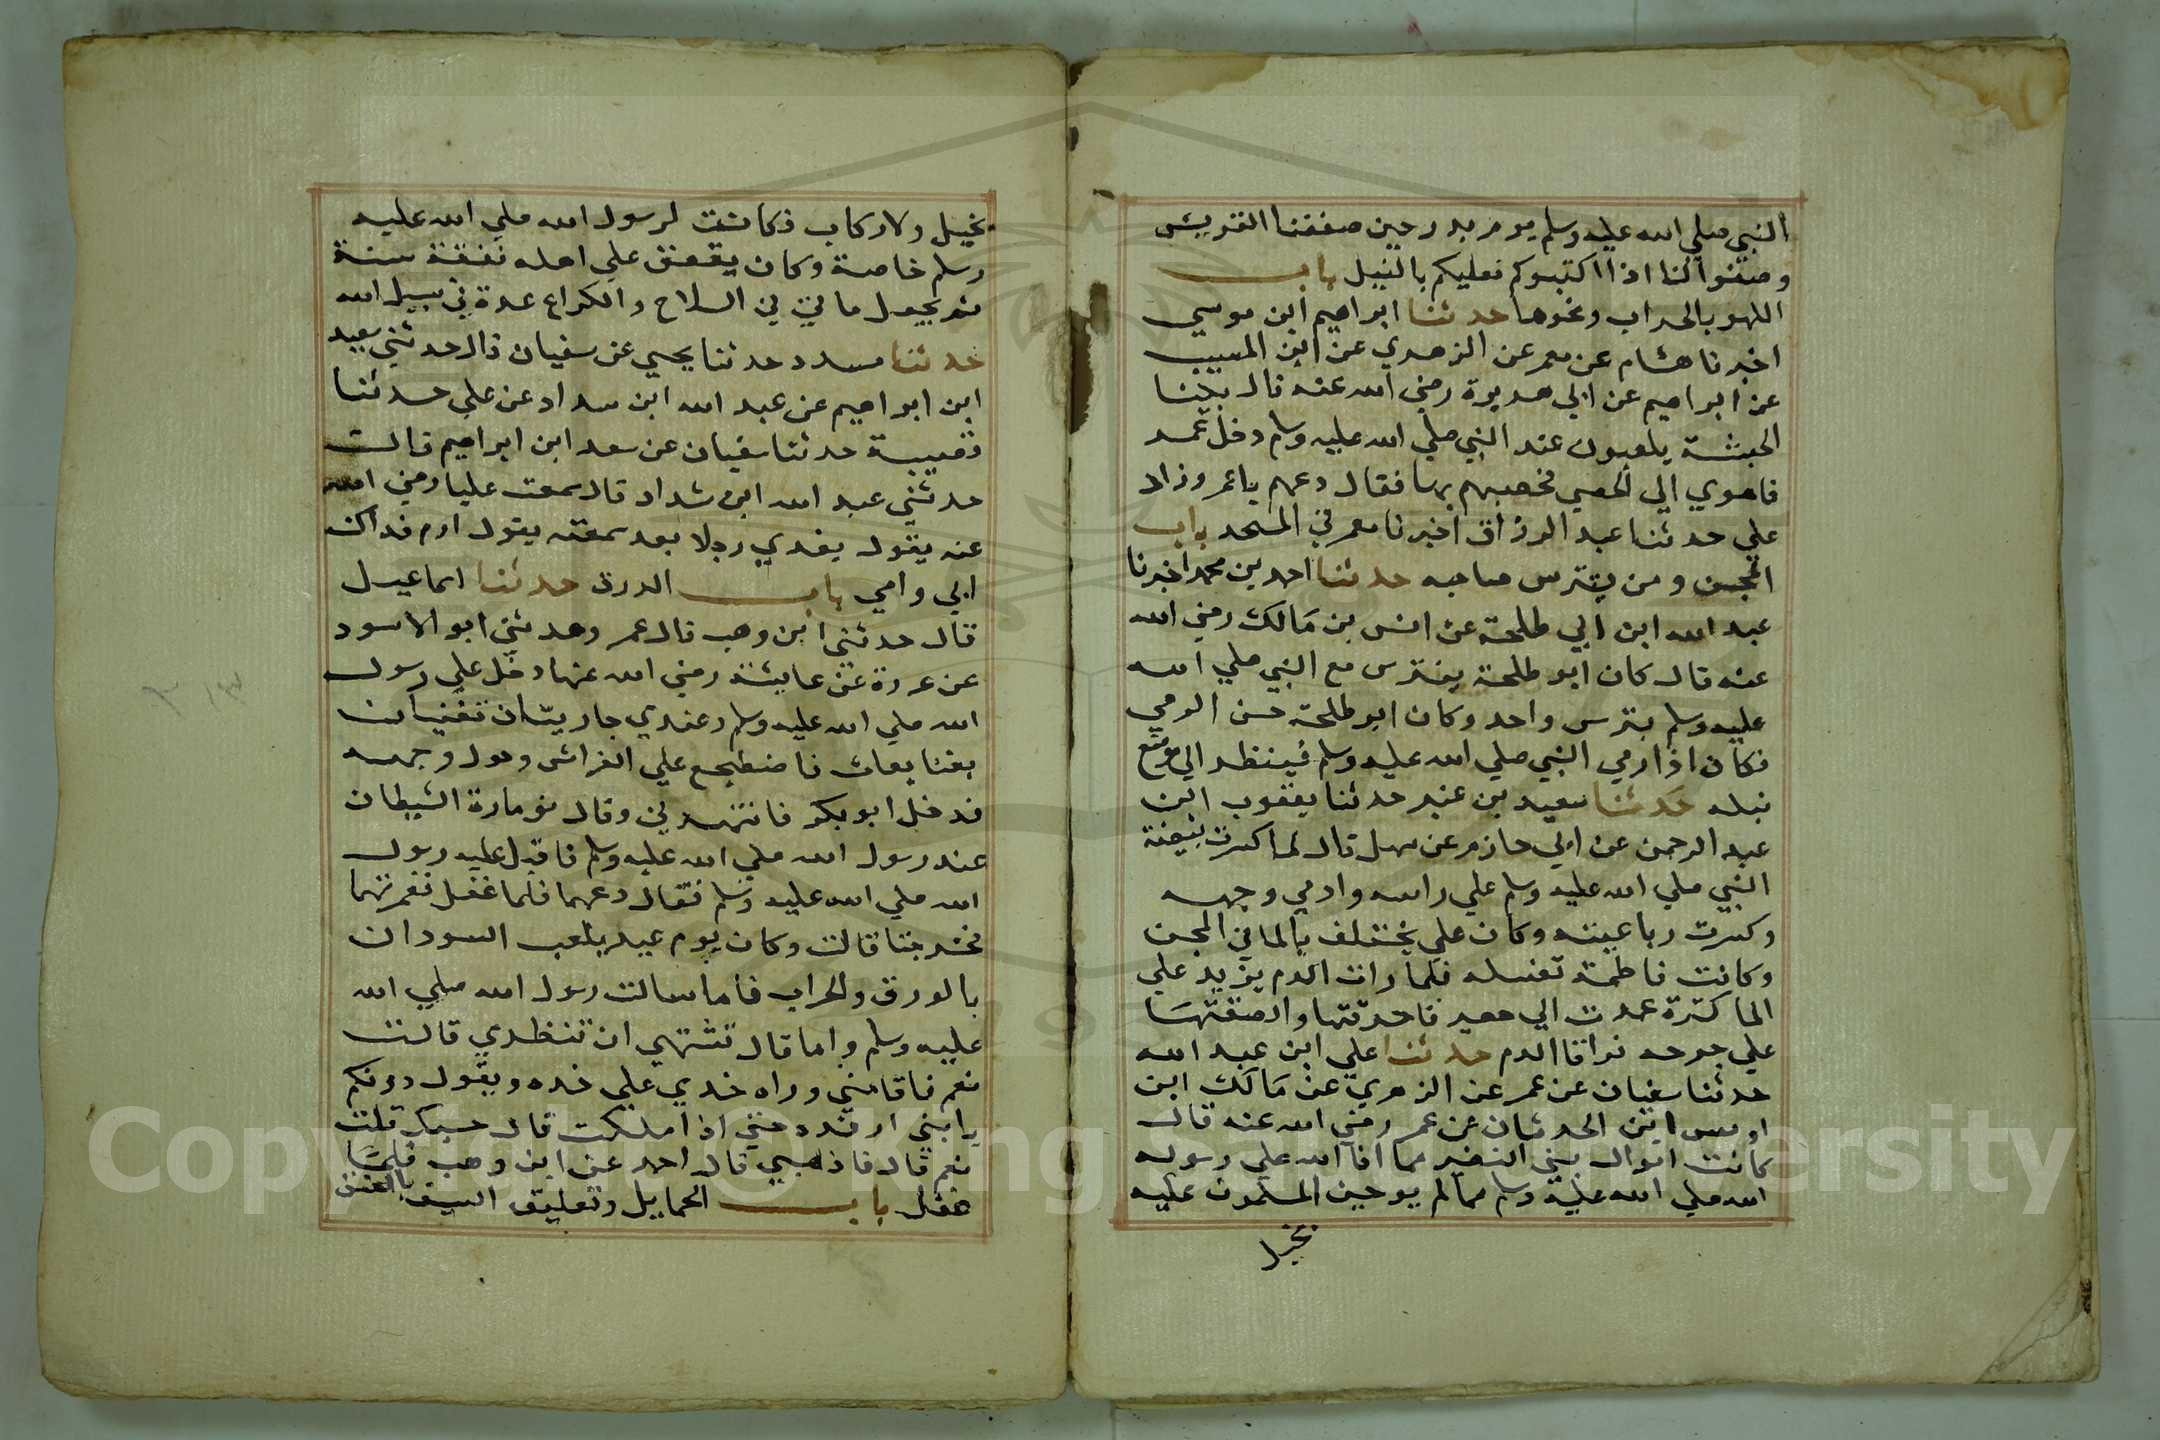 النبي صلي الله عليه وسلم يوم بدر حين صففنا القريش
وصفوا لنا اذا اكثبوكم فعليكم بالنبل باب
اللهو بالحراب ونحوها حدثنا ابراهيم ابن موسي
اخبرنا هشام عن معمر عن الزهري عن ابن المسيب
عن ابراهيم عن ابي هريرة رضي الله عنه قال بينا
الحبشة يلعبون عند النبي صلي الله عليه وسلم دخل عمر
فاهوي الي الحصي فحصبهم بها فقال دعهم ياعمر وزاد
علي حدثنا عبد الرزاق اخبرنا معمر في المسجد باب
المجن ومن يتترس صاحبه حدثنا احمد بن محمد اخبرنا
عبد الله ابن ابي طلحة عن انس بن مالك رضي الله
عنه قال كان ابو طلحة يتترس مع النبي صلي الله
عليه وسلم بترس واحد وكان ابو طلحة حسن الرمي
فكان اذا رمي النبي صلي الله عليه وسلم فينظر الي موضع
نبله حدثنا سعيد بن عفير حدثنا يعقوب ابن
عبد الرحمن عن ابي حازم عن سهل قال لما كسرت بيضة
النبي صلي الله عليه وسلم علي راسه وادمي وجهه
وكسرت رباعيته وكان علي يختلف بالما في المجن
وكانت فاطمة تغسله فلما رات الدم يزيد علي
الما كثرة عمدت الي حصير فاحرقتها والصقتها
علي جرحه فرقا الدم حدثنا علي ابن عبد الله
حدثنا سفيان عن عمر عن الزهري عن مالك ابن
اوس ابن الحدثان عن عمر رضي الله عنه قال
كانت اموال بني النضير مما افآ الله علي رسوله
الله صلي الله عليه وسلم مما لم يوجف المسلمون عليه
بخيل
بخيل ولا ركاب فكانت لرسول الله صلي الله عليه
وسلم خاصة وكان ينفق علي اهله نفقة سنة
ثم يجعل ما بقي في السلاح والكراع عدة في سبيل الله
حدثنا مسدد حدثنا يحيي عن سفيان قال حدثني سعيد
ابن ابراهيم عن عبد الله ابن سداد عن علي حدثنا
قبيصة حدثنا سفيان عن سعد ابن ابراهيم قالت
حدثني عبد الله ابن شداد قال سمعت عليا رضي الله
عنه يقول يفدي رجلا بعد سمعته يقول ارم فداك
ابي وامي باب الدرق حدثنا اسماعيل
قال حدثني ابن وهب قال عمر وحدثني ابو الاسود
عن عروة عن عايشة رضي الله عنها دخل علي رسول
الله صلي الله عليه وسلم وعندي جاريتان تغنيان
بغنا بعاث فاضطجع علي الفراش وحول وجهه
فدخل ابو بكر فانتهرني وقال مزمارة الشيطان
عند رسول الله صلي الله عليه وسلم فاقبل عليه رسول
الله صلي الله عليه وسلم فقال دعهما فلما غفل نغمزتهما
فخرجتا قالت وكان يوم عيد يلعب السودان
بالورق والحراب فاما سالت رسول الله صلي الله
عليه وسلم واما قال تشتهي ان تنظري قالت
نعم فاقامني وراه خدي علي خده ويقول دونكم
يا بني ارفدة حتي اذا مللت قال حسبك قلت
نعم قال فاذهبي قال احمد عن ابن وهب فلما
غفل باب الحمايل وتعليق السيف بالعنق